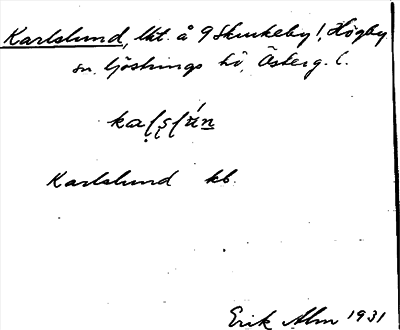 Karlslund, lht. å 9 Skurkeby!, Högby
sn. Göstrings hd, Österg. l.
Karlslund kb.
Erik Alm 1931